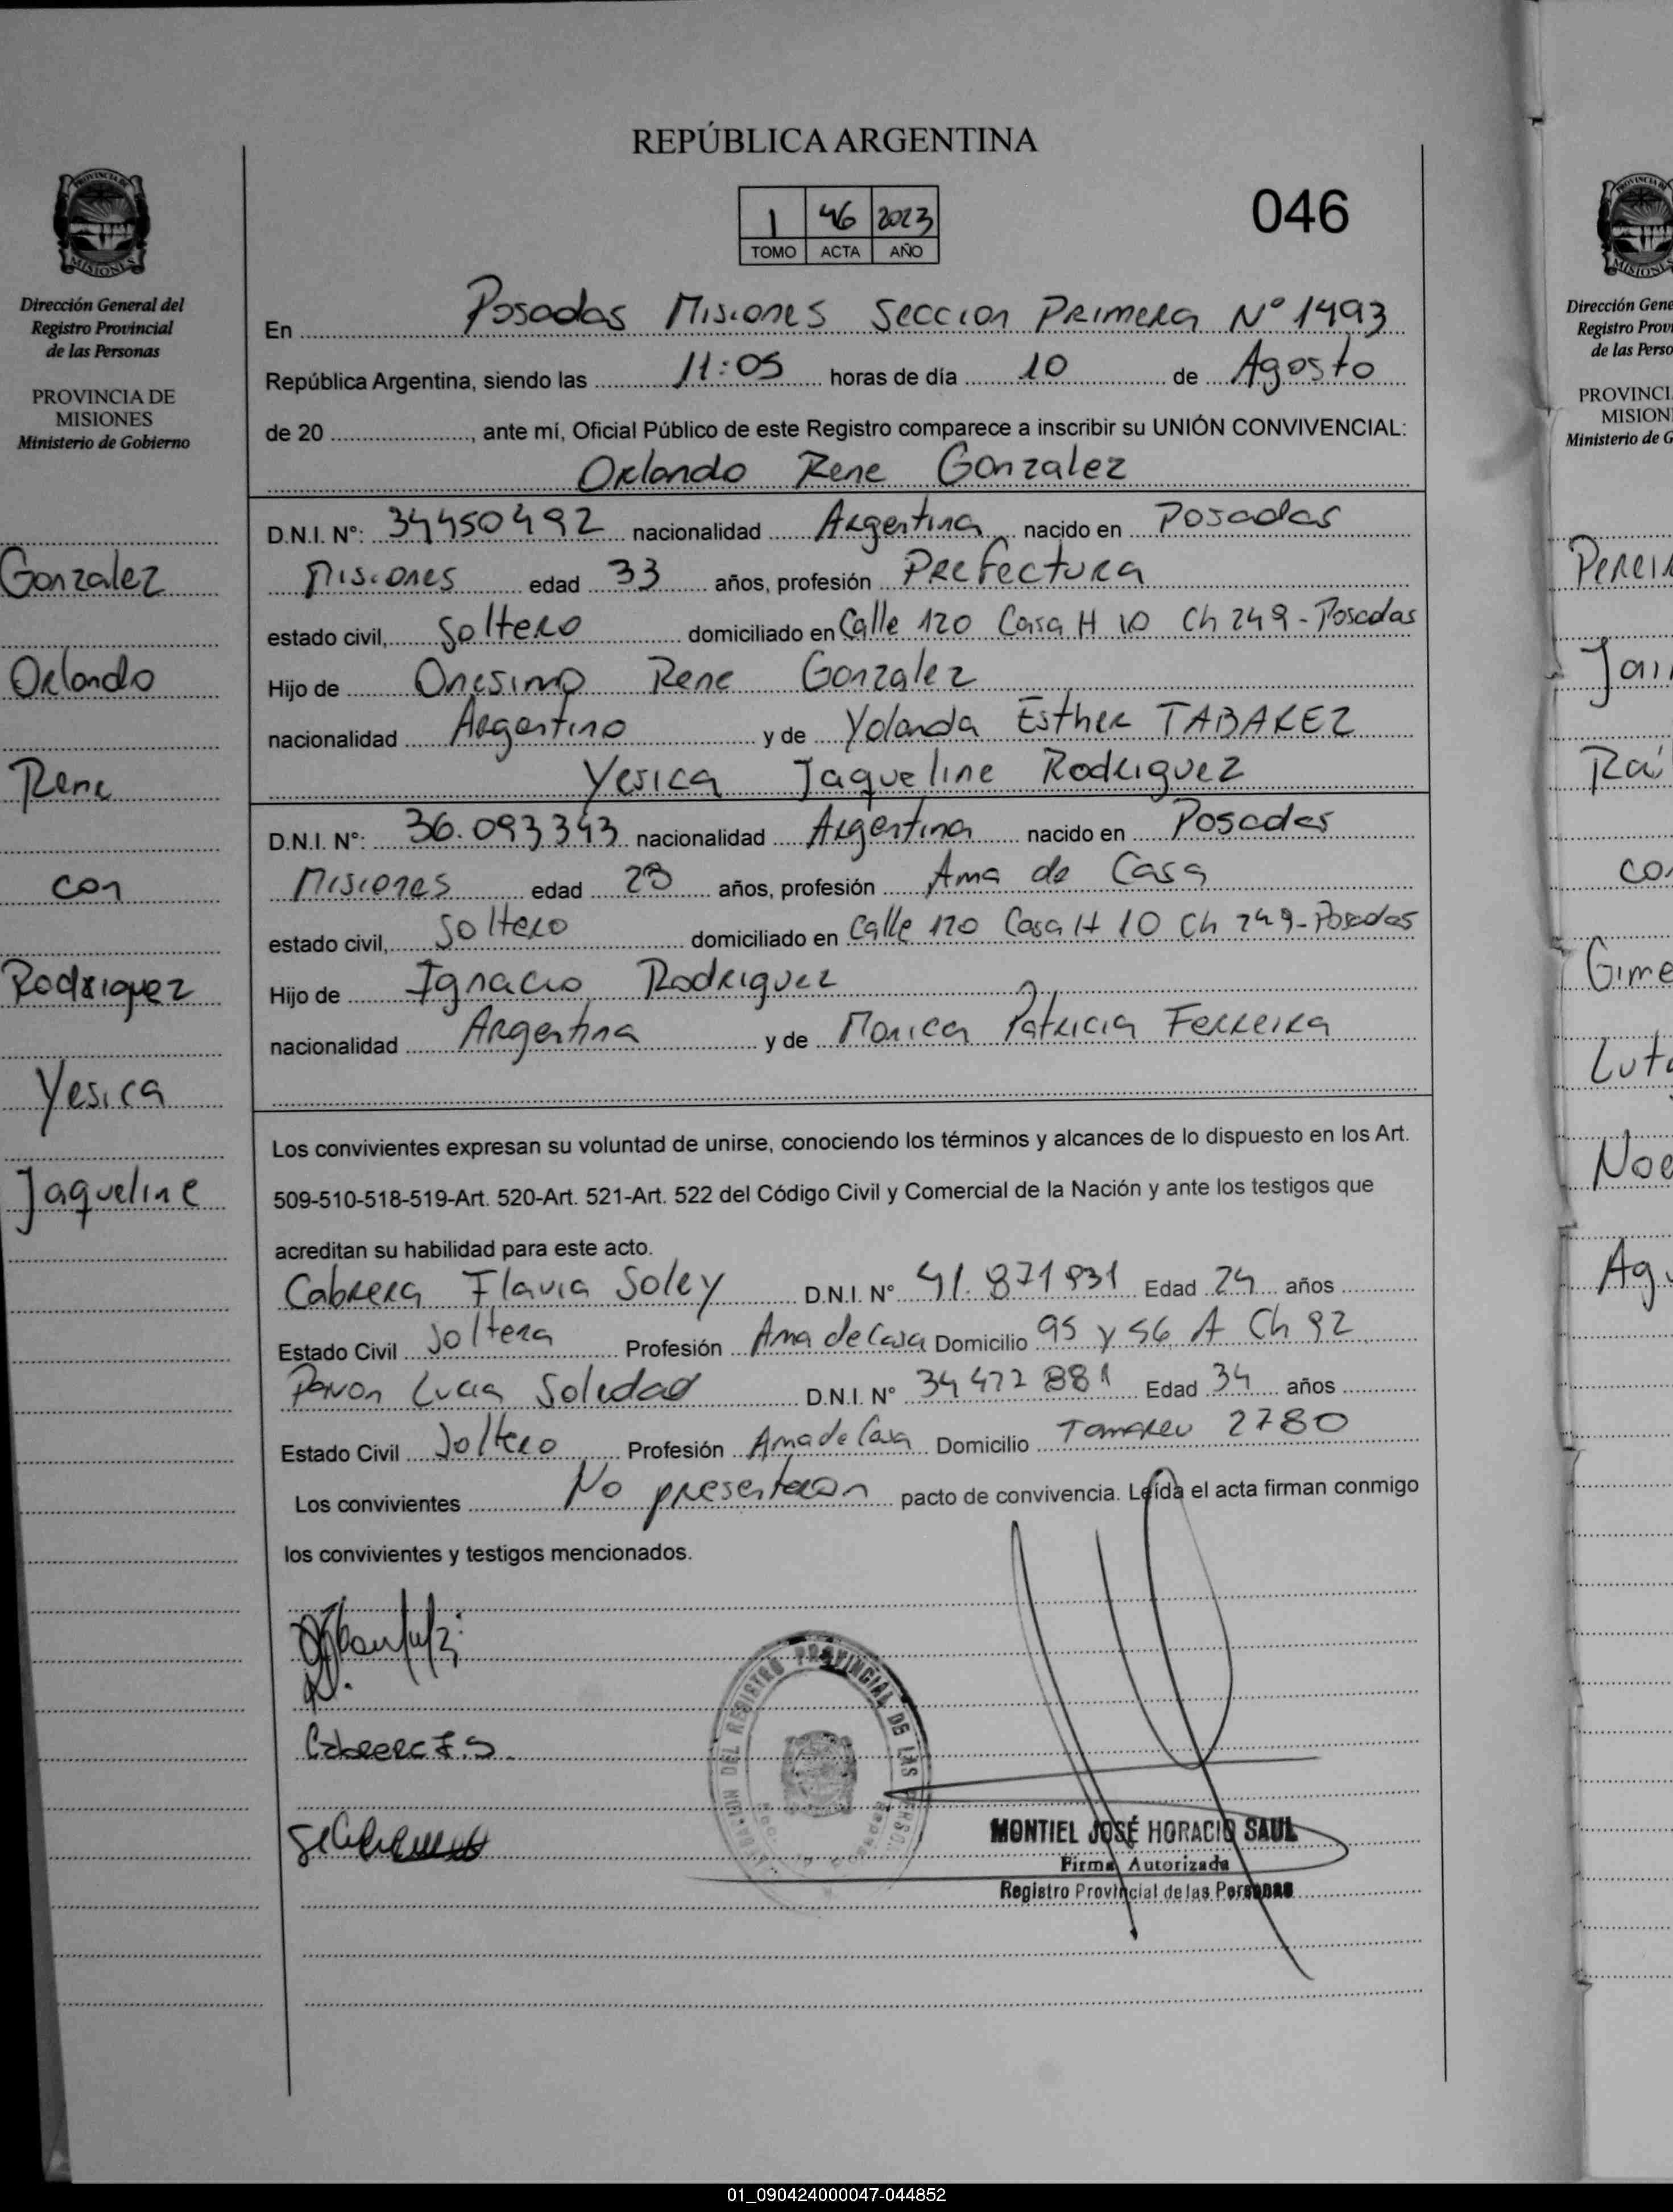 REPÚBLICA ARGENTINA
1 46 2023
TOMO ACTA AÑO
046
PROVINCIA DE MISIONES
Dirección General del
Registro Provincial
de las Personas
PROVINCIA DE
MISIONES
Ministerio de Gobierno
Gonzalez
Orlando
Rene
con
Rodriguez
Yesica
Jaqueline
En Posadas Misiones Seccion Primera Nº 1493
República Argentina, siendo las 11:05 horas de día 10 de Agosto
de 20 , ante mí, Oficial Público de este Registro comparece a inscribir su UNIÓN CONVIVENCIAL:
Orlando Rene Gonzalez
D.N.I. Nº: 34450492 nacionalidad Argentina nacido en Posadas
Misiones edad 33 años, profesión Prefectura
estado civil, Soltero domiciliado en Calle 120 Casa H 10 Ch 249 - Posadas
Hijo de Onesimo Rene Gonzalez
nacionalidad Argentino y de Yolanda Esther TABAREZ
Yesica Jaqueline Rodriguez
D.N.I. Nº: 36.093343 nacionalidad Argentina nacido en Posadas
Misiones edad años, profesión Ama de Casa
estado civil, Soltero domiciliado en Calle 120 Casa H 10 Ch 249 - Posadas
Hijo de Ignacio Rodriguez
nacionalidad Argentina y de Monica Patricia Ferreira
Los convivientes expresan su voluntad de unirse, conociendo los términos y alcances de lo dispuesto en los Art.
509-510-518-519-Art. 520-Art. 521-Art. 522 del Código Civil y Comercial de la Nación y ante los testigos que
acreditan su habilidad para este acto.
Cabrera Flavia Soley D.N.I. Nº 41.871931 Edad 24 años
Estado Civil Soltera Profesión Ama de Casa Domicilio 95 y 56 A Ch 92
Pavon Lucia Soledad D.N.I. Nº 34 472 881 Edad 34 años
Estado Civil Soltero Profesión Ama de Casa Domicilio 2780
Los convivientes No presentaron pacto de convivencia. Leída el acta firman conmigo
los convivientes y testigos mencionados.
Cabrera F.S
DEL REGISTRO PROVINCIAL DE LAS PERSONAS
MONTIEL JOSÉ HORACIO SAUL
Firma Autorizada
Registro Provincial de las Personas
PROVINCIA DE MISIONES
Dirección Gene
Registro Provi
de las Perso
PROVINCI
MISION
Ministerio de G
Perei
Rai
co
Gime
Noe
Ag
01_090424000047-044852